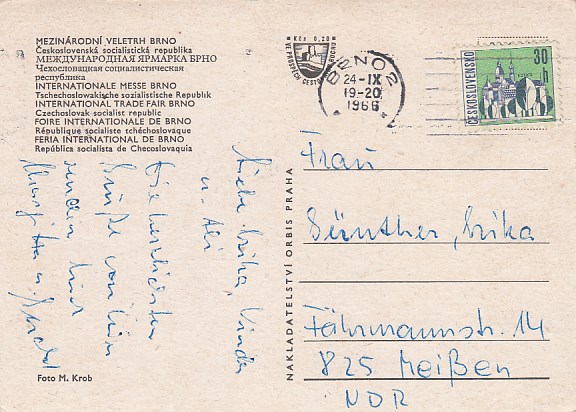 MEZINÁRODNÍ VELETRH BRNO
Československá socialistická republika
МЕЖДУНАРОДНАЯ ЯРМАРКА БРНО
Чехословацкая социалистическая
республика
INTERNATIONALE MESSE BRNO
Tschechoslowakische sozialistische Republik
INTERNATIONAL TRADE FAIR BRNO
Czechoslovak socialist republic
FOIRE INTERNATIONALE DE BRNO
République socialiste tchéchoslovaque
FERIA INTERNATIONAL DE BRNO
República socialista de Checoslovaquia
Liebe Erika, Kinder
u.
Die herzlichsten
Grüße von
senden
u.
Foto M. Krob
NAKLADATELSTVÍ ORBIS PRAHA
Kčs 0,20
VE PROSPĚCH CESTOV. RUCHU
BRNO 2
24-IX
19-20
1966
ČESKOSLOVENSKO
30 h
Frau
Günther, Erika
Fährmannstr. 14
825 Meißen
NDR